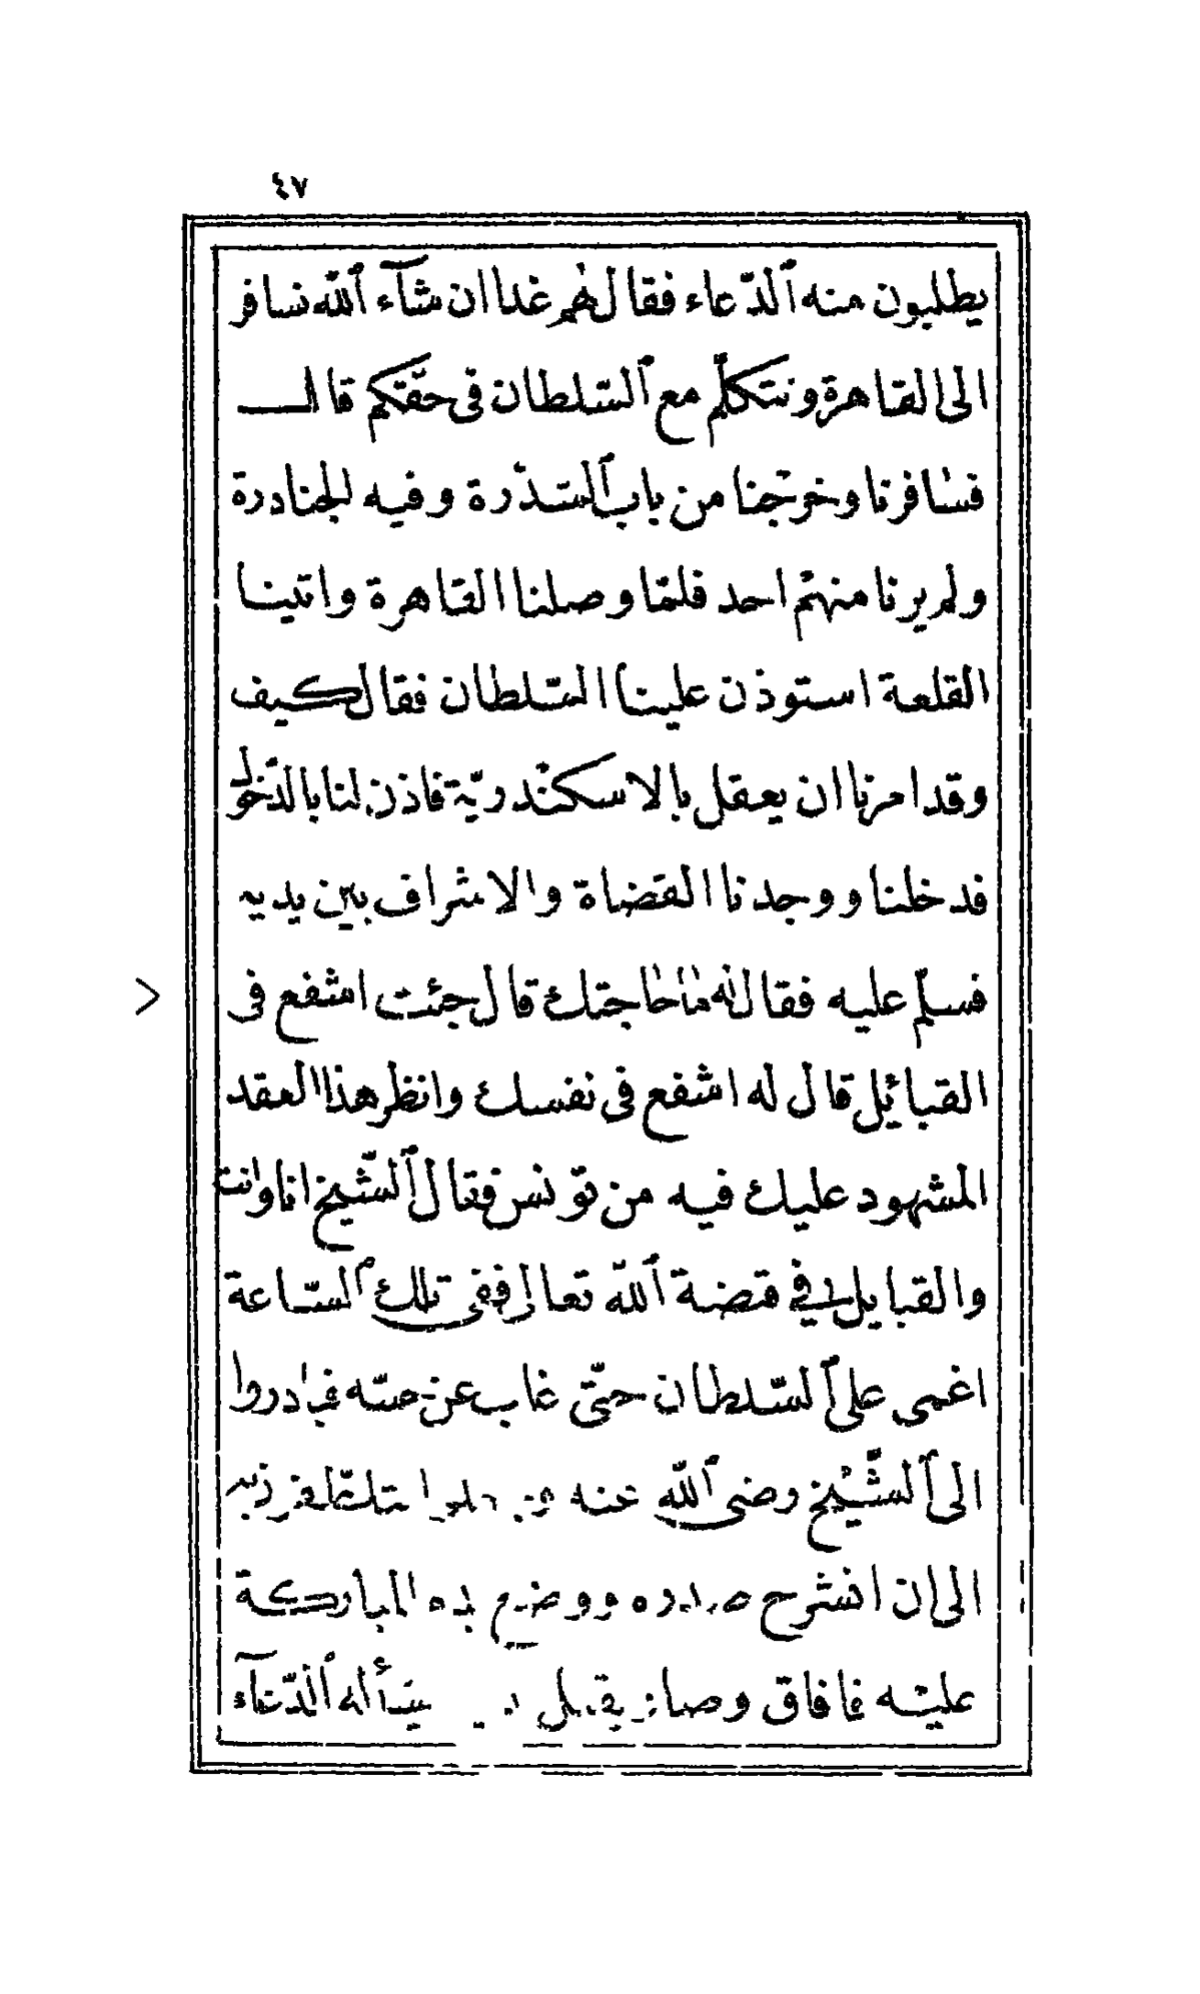 ٤٧
يطلبون منه الدّعاء فقال لهم غدا ان شآء الله نسافر
الى القاهرة ونتكلّم مع السّلطان فى حقّكم قال
فسافرنا وخرجنا من باب السّدرة وفيه الجنادرة
ولم يرنا منهم احد فلمّا وصلنا القاهرة واتينا
القلعة استوذن علينا السّلطان فقال كيف
وقد امرنا ان يعقل بالاسكندريّة فاذن لنا بالدّخول
فدخلنا ووجدنا القضاة والاشراف بين يديه
فسلّم عليه فقال له ما حاجتك قال جئت اشفع فى
القبائيل قال له اشفع فى نفسك وانظر هذا العقد
المشهود عليك فيه من تونس فقال الشّيخ انا وانت
والقبايل فى قبضة الله تعالى ففى تلك السّاعة
اغمى على السّلطان حتّى غاب عن حسّه فبادروا
الى الشّيخ رضى الله عنه
الى ان انشرح صدره ووضع يده المباركة
عليه فافاق وصار يقبل يسأله الدّعآء